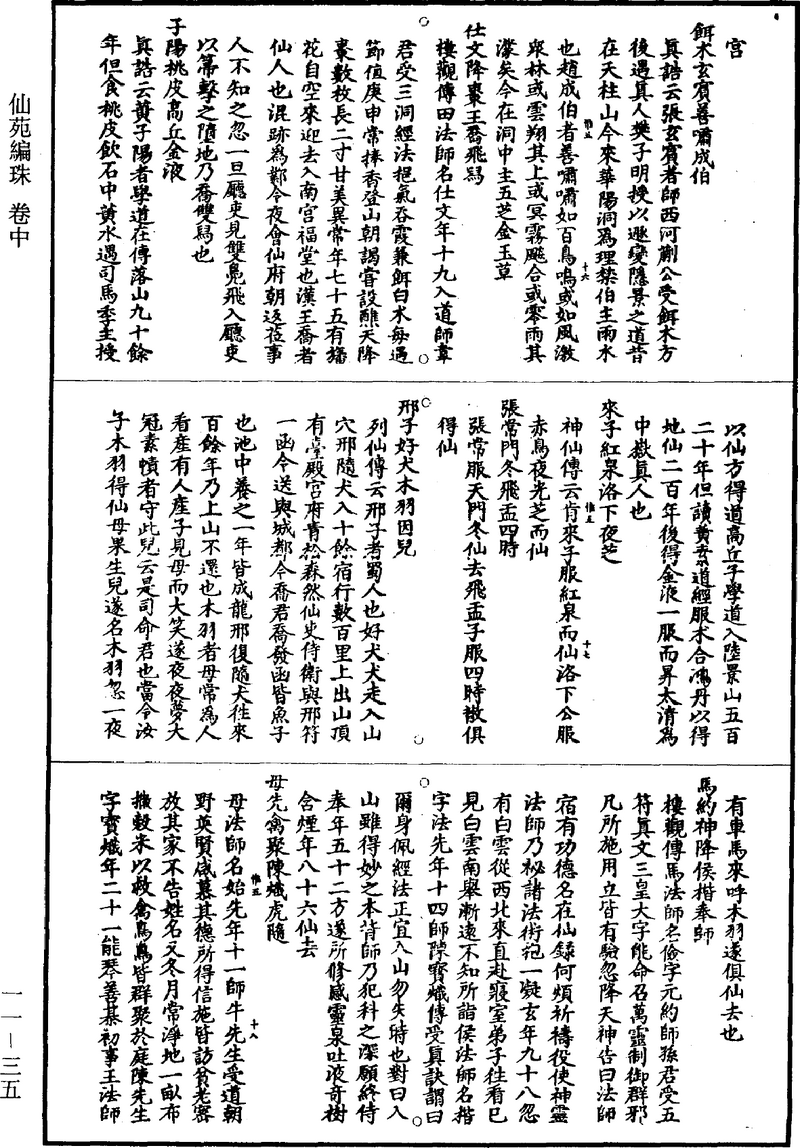 仙苑編珠 卷中
宮
餌朮玄賓善嘯成伯
真誥云張玄賓者師西河薊公受餌朮方
後遇真人樊子明授以遯變隱景之道昔
在天柱山今來華陽洞為理禁伯主雨水
也趙成伯者善嘯嘯如百鳥鳴或如風激
眾林或雲翔其上或冥霧飈合或零雨其
濛矣今在洞中主五芝金玉草
仕文降棗王喬飛舄
樓觀傳田法師名仕文年十九入道師韋
君受三洞經法挹氣吞霞兼餌白朮每遇
節值庚申常捧香登山朝謁嘗設醮天降
棗數枚長二寸甘美異常年七十五有旛
花自空來迎去入南宮福堂也漢王喬者
仙人也混跡為鄴令夜會仙府朝返莅事
人不知之忽一旦廳吏見雙鳧飛入廳吏
以箒擊之墮地乃喬雙舄也
子陽桃皮高丘金液
真誥云黃子陽者學道在傅落山九十餘
年但食桃皮飲石中黃水遇司馬季主授
以仙方得道高丘子學道入陸景山五百
二十年但讀黃素道經服朮合鴻丹以得
地仙二百年後得金液一服而昇太清為
中嶽真人也
來子紅泉洛下夜芝
神仙傳云肯來子服紅泉而仙洛下公服
赤鳥夜光芝而仙
張常門冬飛盂四時
張常服天門冬仙去飛盂子服四時散俱
得仙
邢子好犬木羽因兒
列仙傳云邢子者蜀人也好犬犬走入山
穴邢隨犬入十餘宿行數百里上出山頂
有臺殿宮府青松森然仙吏侍衛與邢符
一函令送與城都令喬君喬發函皆魚子
也池中養之一年皆成龍邢復隨犬往來
百餘年乃上山不還也木羽者母常為人
看產有人產子見母而大笑遂夜夜夢大
冠素幘者守此兒云是司命君也當令汝
子木羽得仙母果生兒遂名木羽忽一夜
有車馬來呼木羽遂俱仙去也
馬約神降侯楷奉師
樓觀傳馬法師名儉字元約師孫君受五
符真文三皇大字能命召萬靈制御群邪
凡所施用立皆有驗忽降天神告曰法師
宿有功德名在仙錄何煩祈禱役使神靈
法師乃祕諸法術抱一凝玄年九十八忽
有白雲從西北來直赴寢室弟子往看已
見白雲南舉漸遠不知所詣侯法師名楷
字法先年十四師陳寶熾傳受真訣謂曰
爾身佩經法正宜入山勿失時也對曰入
山雖得妙之本背師乃犯科之深願終侍
奉年五十二方遂所修感靈泉吐液奇樹
含煙年八十六仙去
母先禽聚陳熾虎隨
母法師名始先年十一師牛先生受道朝
野英賢咸慕其德所得信施皆訪貧老密
放其家不告姓名又冬月常淨地一畝布
撒穀米以救禽鳥鳥皆群聚於庭陳先生
字寶熾年二十一能琴善棊初事王法師
惟五
十六
惟五
十七
惟五
十八
一一－三五